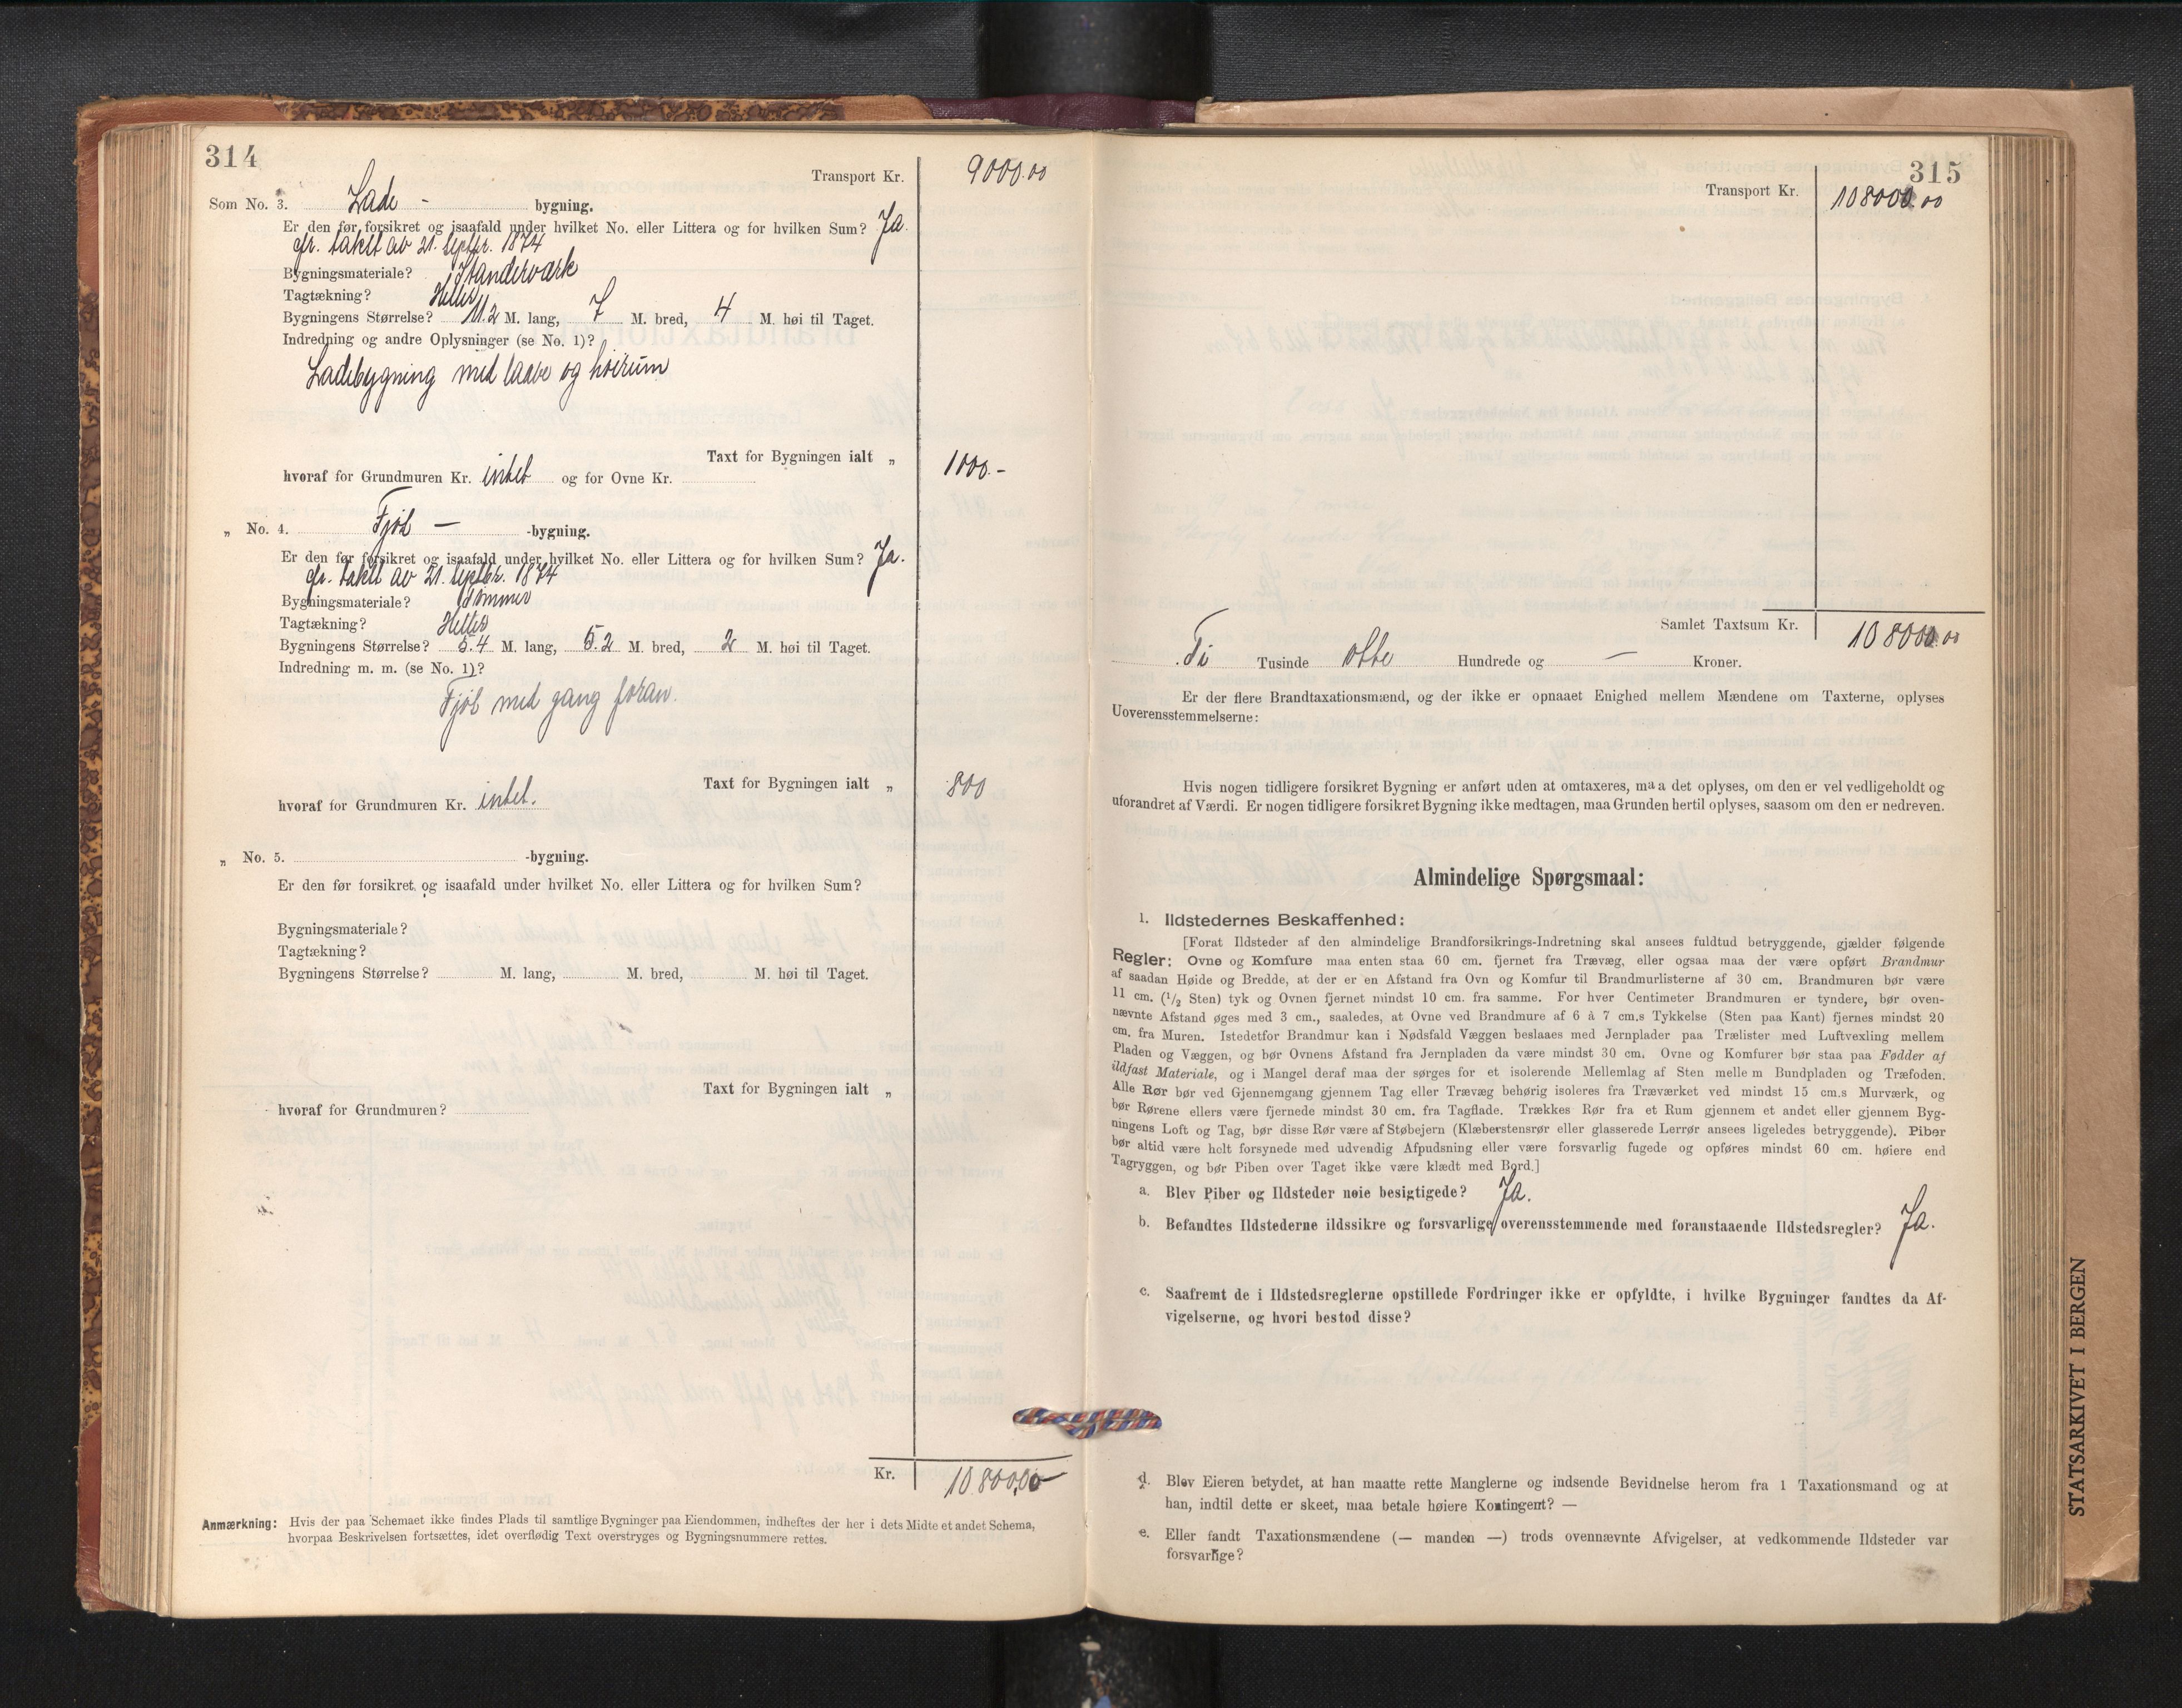 314
Transport Kr. 9000.00
Som No. 3. Lade - bygning.
Er den før forsikret og isaafald under hvilket No. eller Littera og for hvilken Sum? Ja.
cfr. takst av 21. Septbr. 1874
Bygningsmateriale? Standerværk
Tagtækning? Heller
Bygningens Størrelse? 11.2 M. lang, 7 M. bred, 4 M. høi til Taget.
Indredning og andre Oplysninger (se No. 1)?
Ladebygning med laave og høirum
Taxt for Bygningen ialt „ 1000.-
hvoraf for Grundmuren Kr. intet og for Ovne Kr.
„ No. 4. Fjøs — -bygning.
Er den før forsikret og isaafald under hvilket No. eller Littera og for hvilken Sum? Ja.
cfr. takst av 21. Septbr. 1874
Bygningsmateriale? Tømmer
Tagtækning? Heller
Bygningens Størrelse? 5.4 M. lang, 5.2 M. bred, 2 M. høi til Taget.
Indredning m. m. (se No. 1)?
Fjøs med gang foran.
Taxt for Bygningen ialt „ 800
hvoraf for Grundmuren Kr. intet.
„ No. 5. -bygning.
Er den før forsikret og isaafald under hvilket No. eller Littera og for hvilken Sum?
Bygningsmateriale?
Tagtækning?
Bygningens Størrelse? M. lang, M. bred, M. høi til Taget.
Taxt for Bygningen ialt „
hvoraf for Grundmuren?
Kr. 10.800,00
Anmærkning: Hvis der paa Schemaet ikke findes Plads til samtlige Bygninger paa Eiendommen, indheftes der her i dets Midte et andet Schema,
hvorpaa Beskrivelsen fortsættes, idet overflødig Text overstryges og Bygningsnummere rettes.
315
Transport Kr. 10800.00
Samlet Taxtsum Kr. 10800.00
Ti Tusinde otte Hundrede og — Kroner.
Er der flere Brandtaxationsmænd, og der ikke er opnaaet Enighed mellem Mændene om Taxterne, oplyses
Uoverensstemmelserne:
Hvis nogen tidligere forsikret Bygning er anført uden at omtaxeres, maa det oplyses, om den er vel vedligeholdt og
uforandret af Værdi. Er nogen tidligere forsikret Bygning ikke medtagen, maa Grunden hertil oplyses, saasom om den er nedreven.
Almindelige Spørgsmaal:
1. Ildstedernes Beskaffenhed:
[Forat Ildsteder af den almindelige Brandforsikrings-Indretning skal ansees fuldtud betryggende, gjælder følgende
Regler: Ovne og Komfure maa enten staa 60 cm. fjernet fra Trævæg, eller ogsaa maa der være opført Brandmur
af saadan Høide og Bredde, at der er en Afstand fra Ovn og Komfur til Brandmurlisterne af 30 cm. Brandmuren bør være
11 cm. (1/2 Sten) tyk og Ovnen fjernet mindst 10 cm. fra samme. For hver Centimeter Brandmuren er tyndere, bør oven-
nævnte Afstand øges med 3 cm., saaledes, at Ovne ved Brandmure af 6 à 7 cm.s Tykkelse (Sten paa Kant) fjernes mindst 20
cm. fra Muren. Istedetfor Brandmur kan i Nødsfald Væggen beslaaes med Jernplader paa Trælister med Luftvexling mellem
Pladen og Væggen, og bør Ovnens Afstand fra Jernpladen da være mindst 30 cm. Ovne og Komfurer bør staa paa Fødder af
ildfast Materiale, og i Mangel deraf maa der sørges for et isolerende Mellemlag af Sten mellem Bundpladen og Træfoden.
Alle Rør bør ved Gjennemgang gjennem Tag eller Trævæg behørig isoleres fra Træværket ved mindst 15 cm.s Murværk, og
bør Rørene ellers være fjernede mindst 30 cm. fra Tagflade. Trækkes Rør fra et Rum gjennem et andet eller gjennem Byg-
ningens Loft og Tag, bør disse Rør være af Støbejern (Klæberstensrør eller glasserede Lerrør ansees ligeledes betryggende). Piber
bør altid være helt forsynede med udvendig Afpudsning eller være forsvarlig fugede og opføres mindst 60 cm. høiere end
Tagryggen, og bør Piben over Taget ikke være klædt med Bord.]
a. Blev Piber og Ildsteder nøie besigtigede? Ja.
b. Befandtes Ildstederne ildssikre og forsvarlige overensstemmende med foranstaaende Ildstedsregler? Ja.
c. Saafremt de i Ildstedsreglerne opstillede Fordringer ikke er opfyldte, i hvilke Bygninger fandtes da Af-
vigelserne, og hvori bestod disse?
d. Blev Eieren betydet, at han maatte rette Manglerne og indsende Bevidnelse herom fra 1 Taxationsmand og at
han, indtil dette er skeet, maa betale høiere Kontingent? —
e. Eller fandt Taxationsmændene (— manden —) trods ovennævnte Afvigelser, at vedkommende Ildsteder var
forsvarlige?
STATSARKIVET I BERGEN